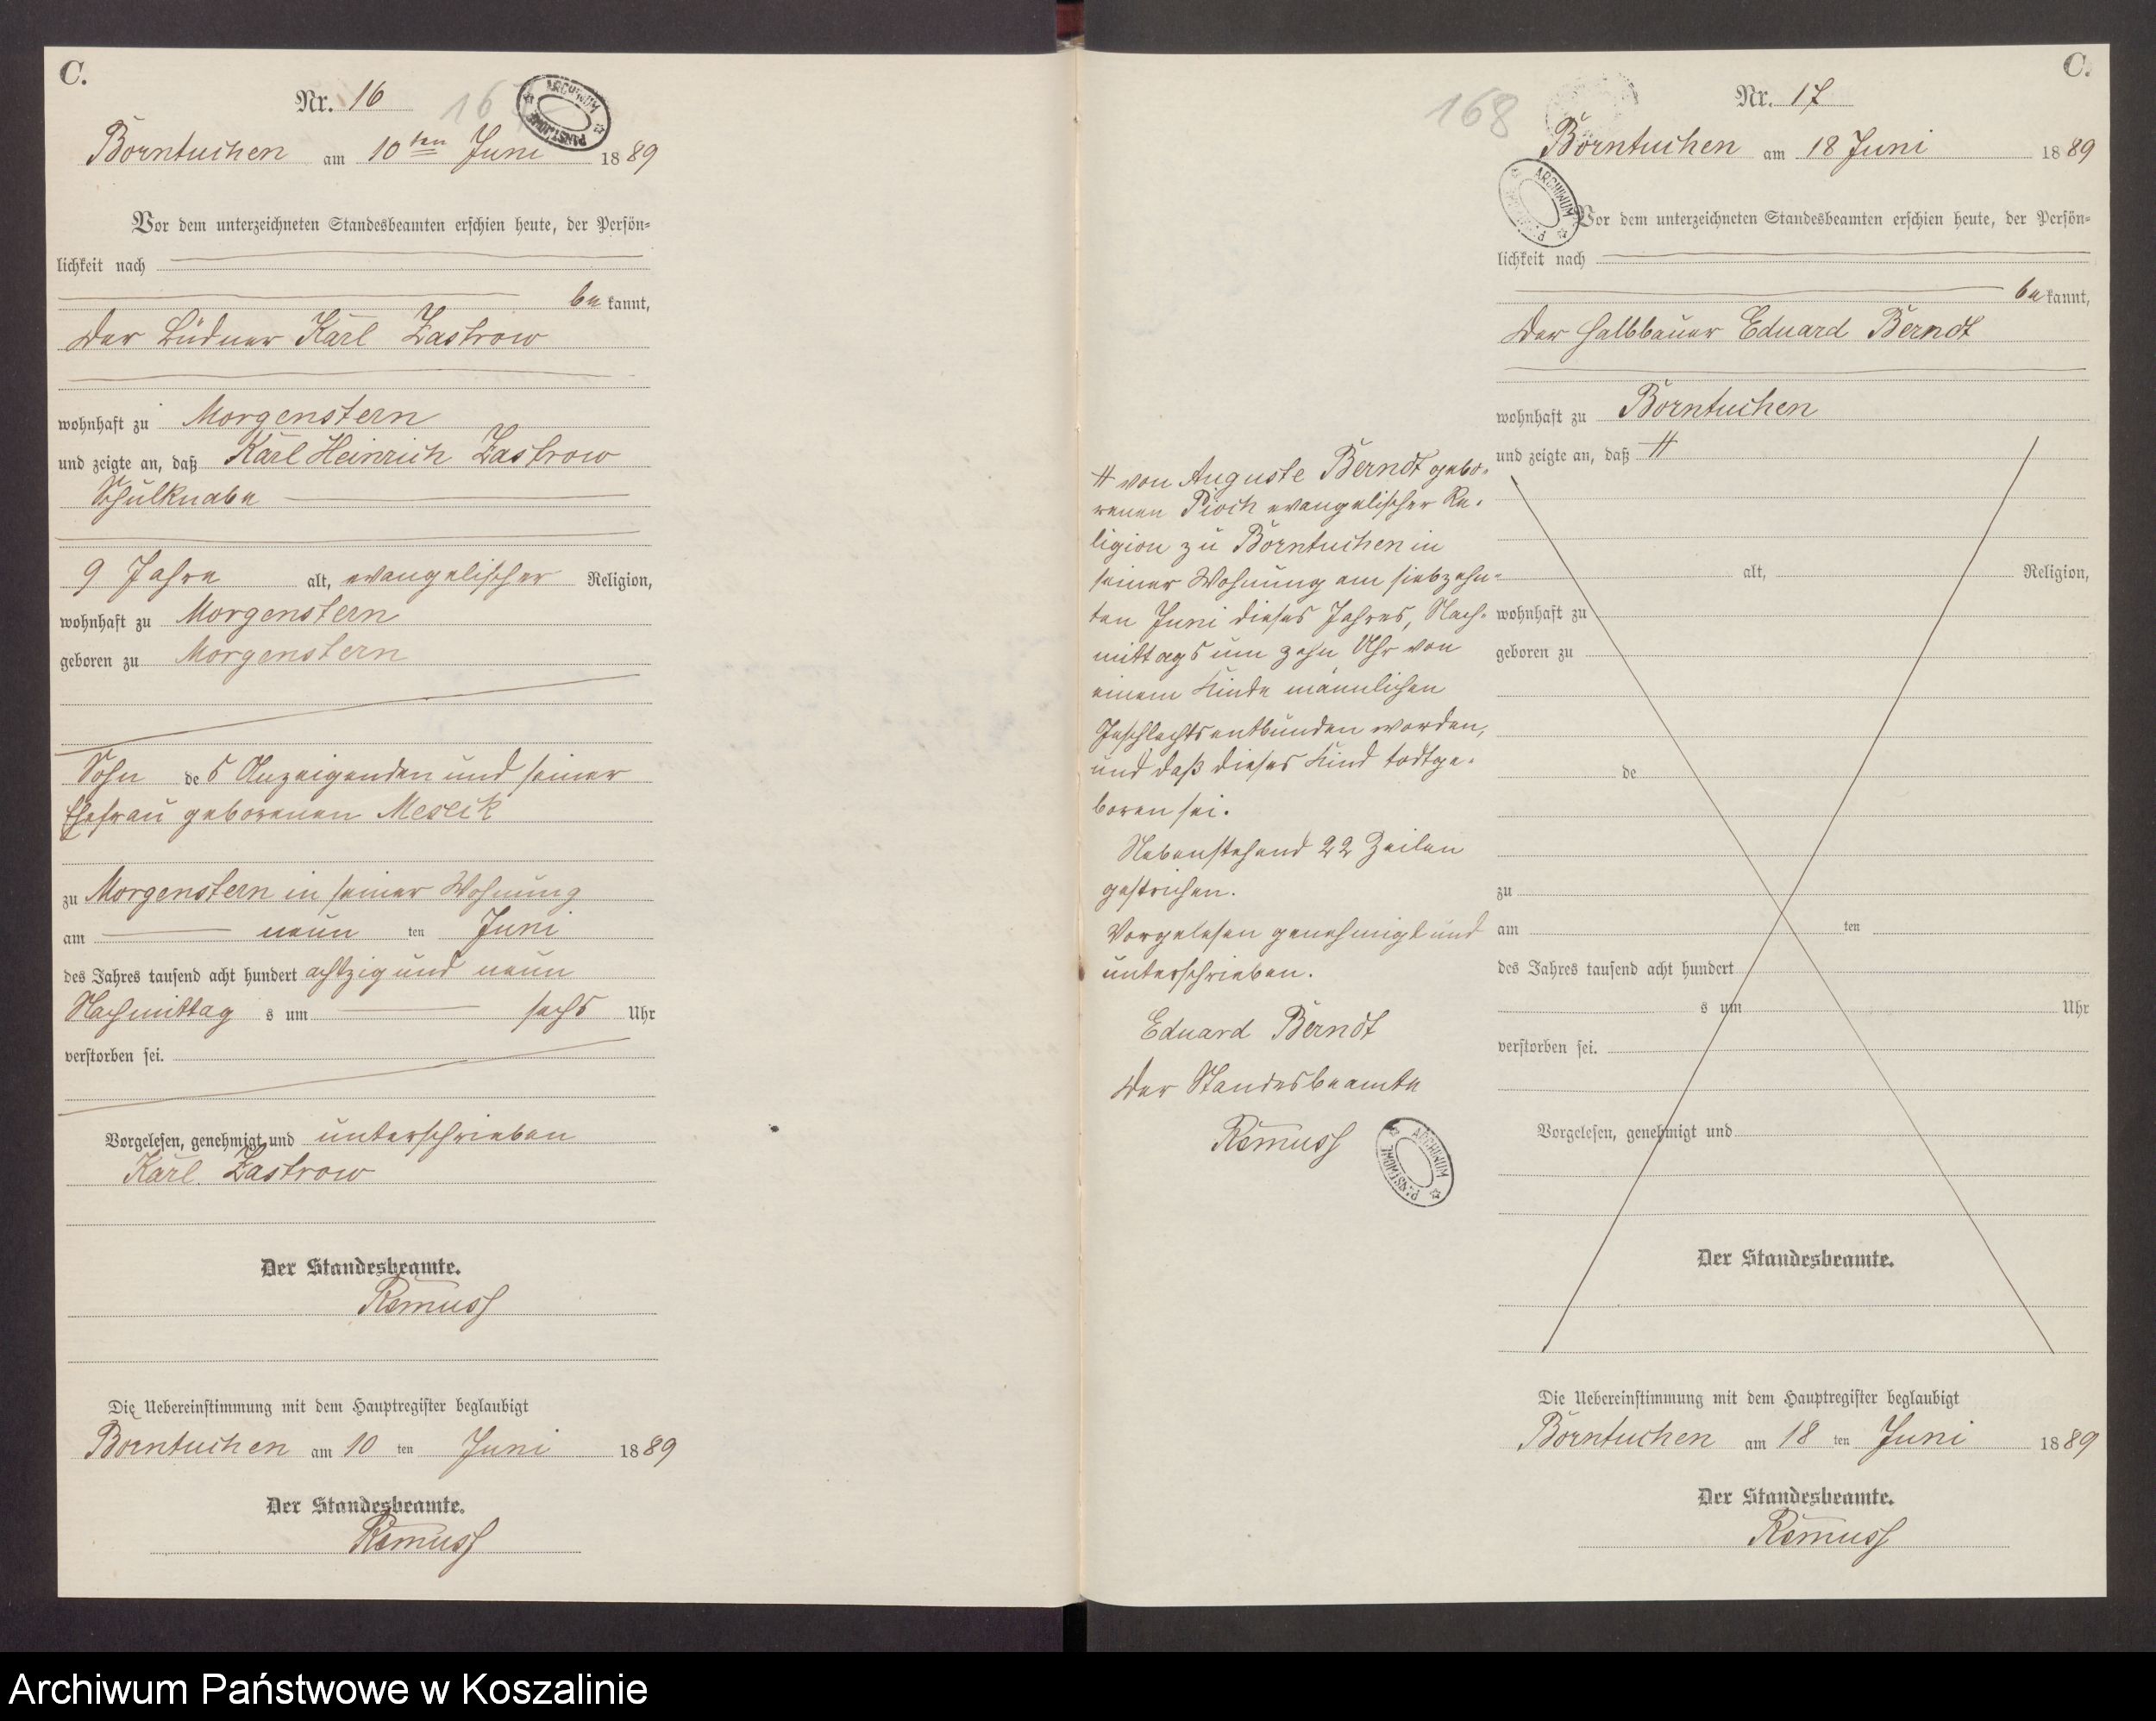 C.
Nr. 16
167
ARCHIWUM PAŃSTWOWE
Borntuchen am 10ten Juni 1889
Vor dem unterzeichneten Standesbeamten erschien heute, der Persön-
lichkeit nach
bekannt,
der Büdner Karl Zastrow
wohnhaft zu Morgenstern
und zeigte an, daß Karl Heinrich Zastrow
Schulknabe
9 Jahre alt, evangelischer Religion,
wohnhaft zu Morgenstern
geboren zu Morgenstern
Sohn des Anzeigenden und seiner
Ehefrau geborenen Meseck
zu Morgenstern in seiner Wohnung
am neun ten Juni
des Jahres tausend acht hundert achtzig und neun
Nachmittag s um sechs Uhr
verstorben sei.
Vorgelesen, genehmigt und unterschrieben
Karl Zastrow
Der Standesbeamte.
Remuss
Die Uebereinstimmung mit dem Hauptregister beglaubigt
Borntuchen am 10 ten Juni 1889
Der Standesbeamte.
Remuss
C.
168
Nr. 17
Borntuchen am 18 Juni 1889
ARCHIWUM PAŃSTWOWE
Vor dem unterzeichneten Standesbeamten erschien heute, der Persön-
lichkeit nach
bekannt,
der Halbbauer Eduard Berndt
wohnhaft zu Borntuchen
und zeigte an, daß #
# von Auguste Berndt gebo-
renen Pioch evangelischer Re-
ligion zu Borntuchen in
seiner Wohnung am siebzehn-
ten Juni dieses Jahres, Nach-
mittags um zehn Uhr von
einem Kinde männlichen
Geschlechts entbunden worden,
und daß dieses Kind todtge-
boren sei.
Nebenstehend 22 Zeilen
gestrichen.
Vorgelesen genehmigt und
unterschrieben.
Eduard Berndt
Der Standesbeamte
Remuss
ARCHIWUM PAŃSTWOWE
alt, Religion,
wohnhaft zu
geboren zu
de
zu
am ten
des Jahres tausend acht hundert
s um Uhr
verstorben sei.
Vorgelesen, genehmigt und
Der Standesbeamte.
Die Uebereinstimmung mit dem Hauptregister beglaubigt
Borntuchen am 18 ten Juni 1889
Der Standesbeamte.
Remuss
Archiwum Państwowe w Koszalinie